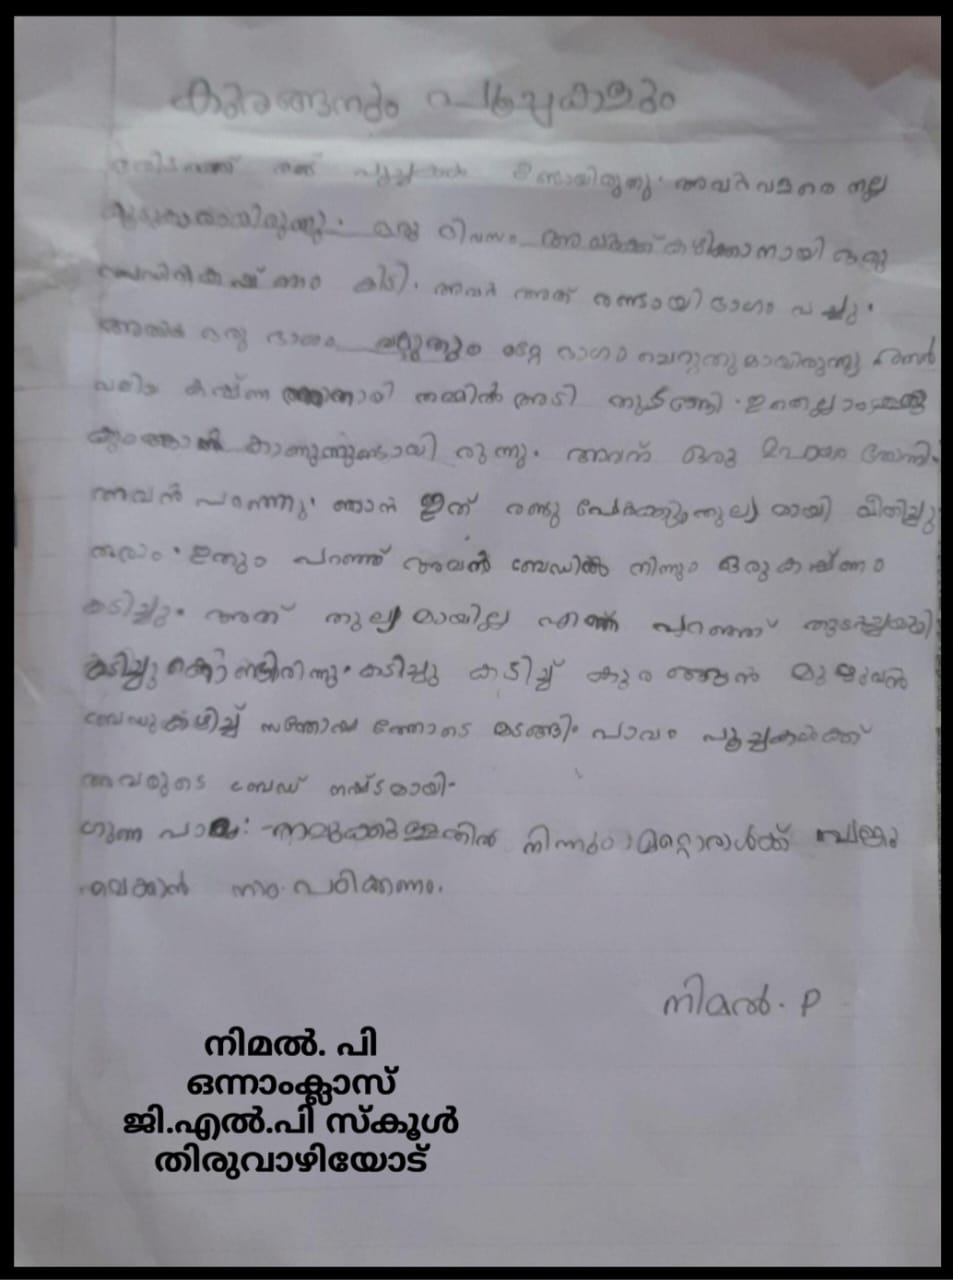 കുരങ്ങനും പൂച്ചകളും
ഒരിടത്ത് രണ്ട് പൂച്ചകൾ ഉണ്ടായിരുന്നു. അവർ വളരെ നല്ല
കൂട്ടുകാരായിരുന്നു. ഒരു ദിവസം അവർക്ക് കഴിക്കാനായി ഒരു
ബ്രഡിൻകഷ്ണം കിട്ടി. അവർ അത് രണ്ടായി ഭാഗം വച്ചു.
അതിൽ ഒരു ഭാഗം വലുതും മറ്റേ ഭാഗം ചെറുതുമായിരുന്നു
വലിയ കഷ്ണത്തിനായി തമ്മിൽ അടി തുടങ്ങി. ഇതെല്ലാം ഒരു
കുരങ്ങൻ കാണുന്നുണ്ടായി രുന്നു. അവന് ഒരു തോന്നി.
അവൻ പറഞ്ഞു. ഞാൻ ഇത് രണ്ടു പേർക്കും തുല്യ മായി വീതിച്ചു
തരാം. ഇതും പറഞ്ഞ് അവൻ ബ്രേഡിൽ നിന്നും ഒരു കഷ്ണം
കടിച്ചു. അത് തുല്യ മായില്ല എന്ന് പറഞ്ഞ് തുടർച്ചയായി
കടിച്ചു കൊണ്ടിരിന്നു. കടിച്ചു കടിച്ച് കുരങ്ങൻ മുഴുവൻ
ബ്രേഡുകഴിച്ച് സന്തോഷ ത്തോടെ മടങ്ങി. പാവം പൂച്ചകൾക്ക്
അവരുടെ ബ്രേഡ് നഷ്ടമായി.
ഗുണ പാഠം: നമുക്കുള്ളതിൽ നിന്നും മറ്റൊരാൾക്ക് പങ്കു
വെക്കാൻ നാം പഠിക്കണം.
നിമൽ. P
നിമൽ. പി
ഒന്നാംക്ലാസ്
ജി.എൽ.പി സ്കൂൾ
തിരുവാഴിയോട്